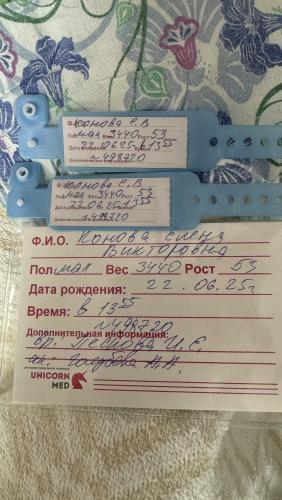 Ф.И.О. Конова Е.В
Пол мал Вес 3440 Рост 53
Дата рождения: 22.06.25г в 13 55
№498720
Ф.И.О. Конова Е.В
Пол мал Вес 3440 Рост 53
Дата рождения: 22.06.25г 13 55
№498720
Ф.И.О. Конова Елена
Викторовна
Пол мал Вес 3440 Рост 53
Дата рождения: 22.06.25г
Время: в 13 55
№498720
Дополнительная информация:
вр. Пескова И.Е.
ак. Голубова Н.Н.
UNICORN
MED